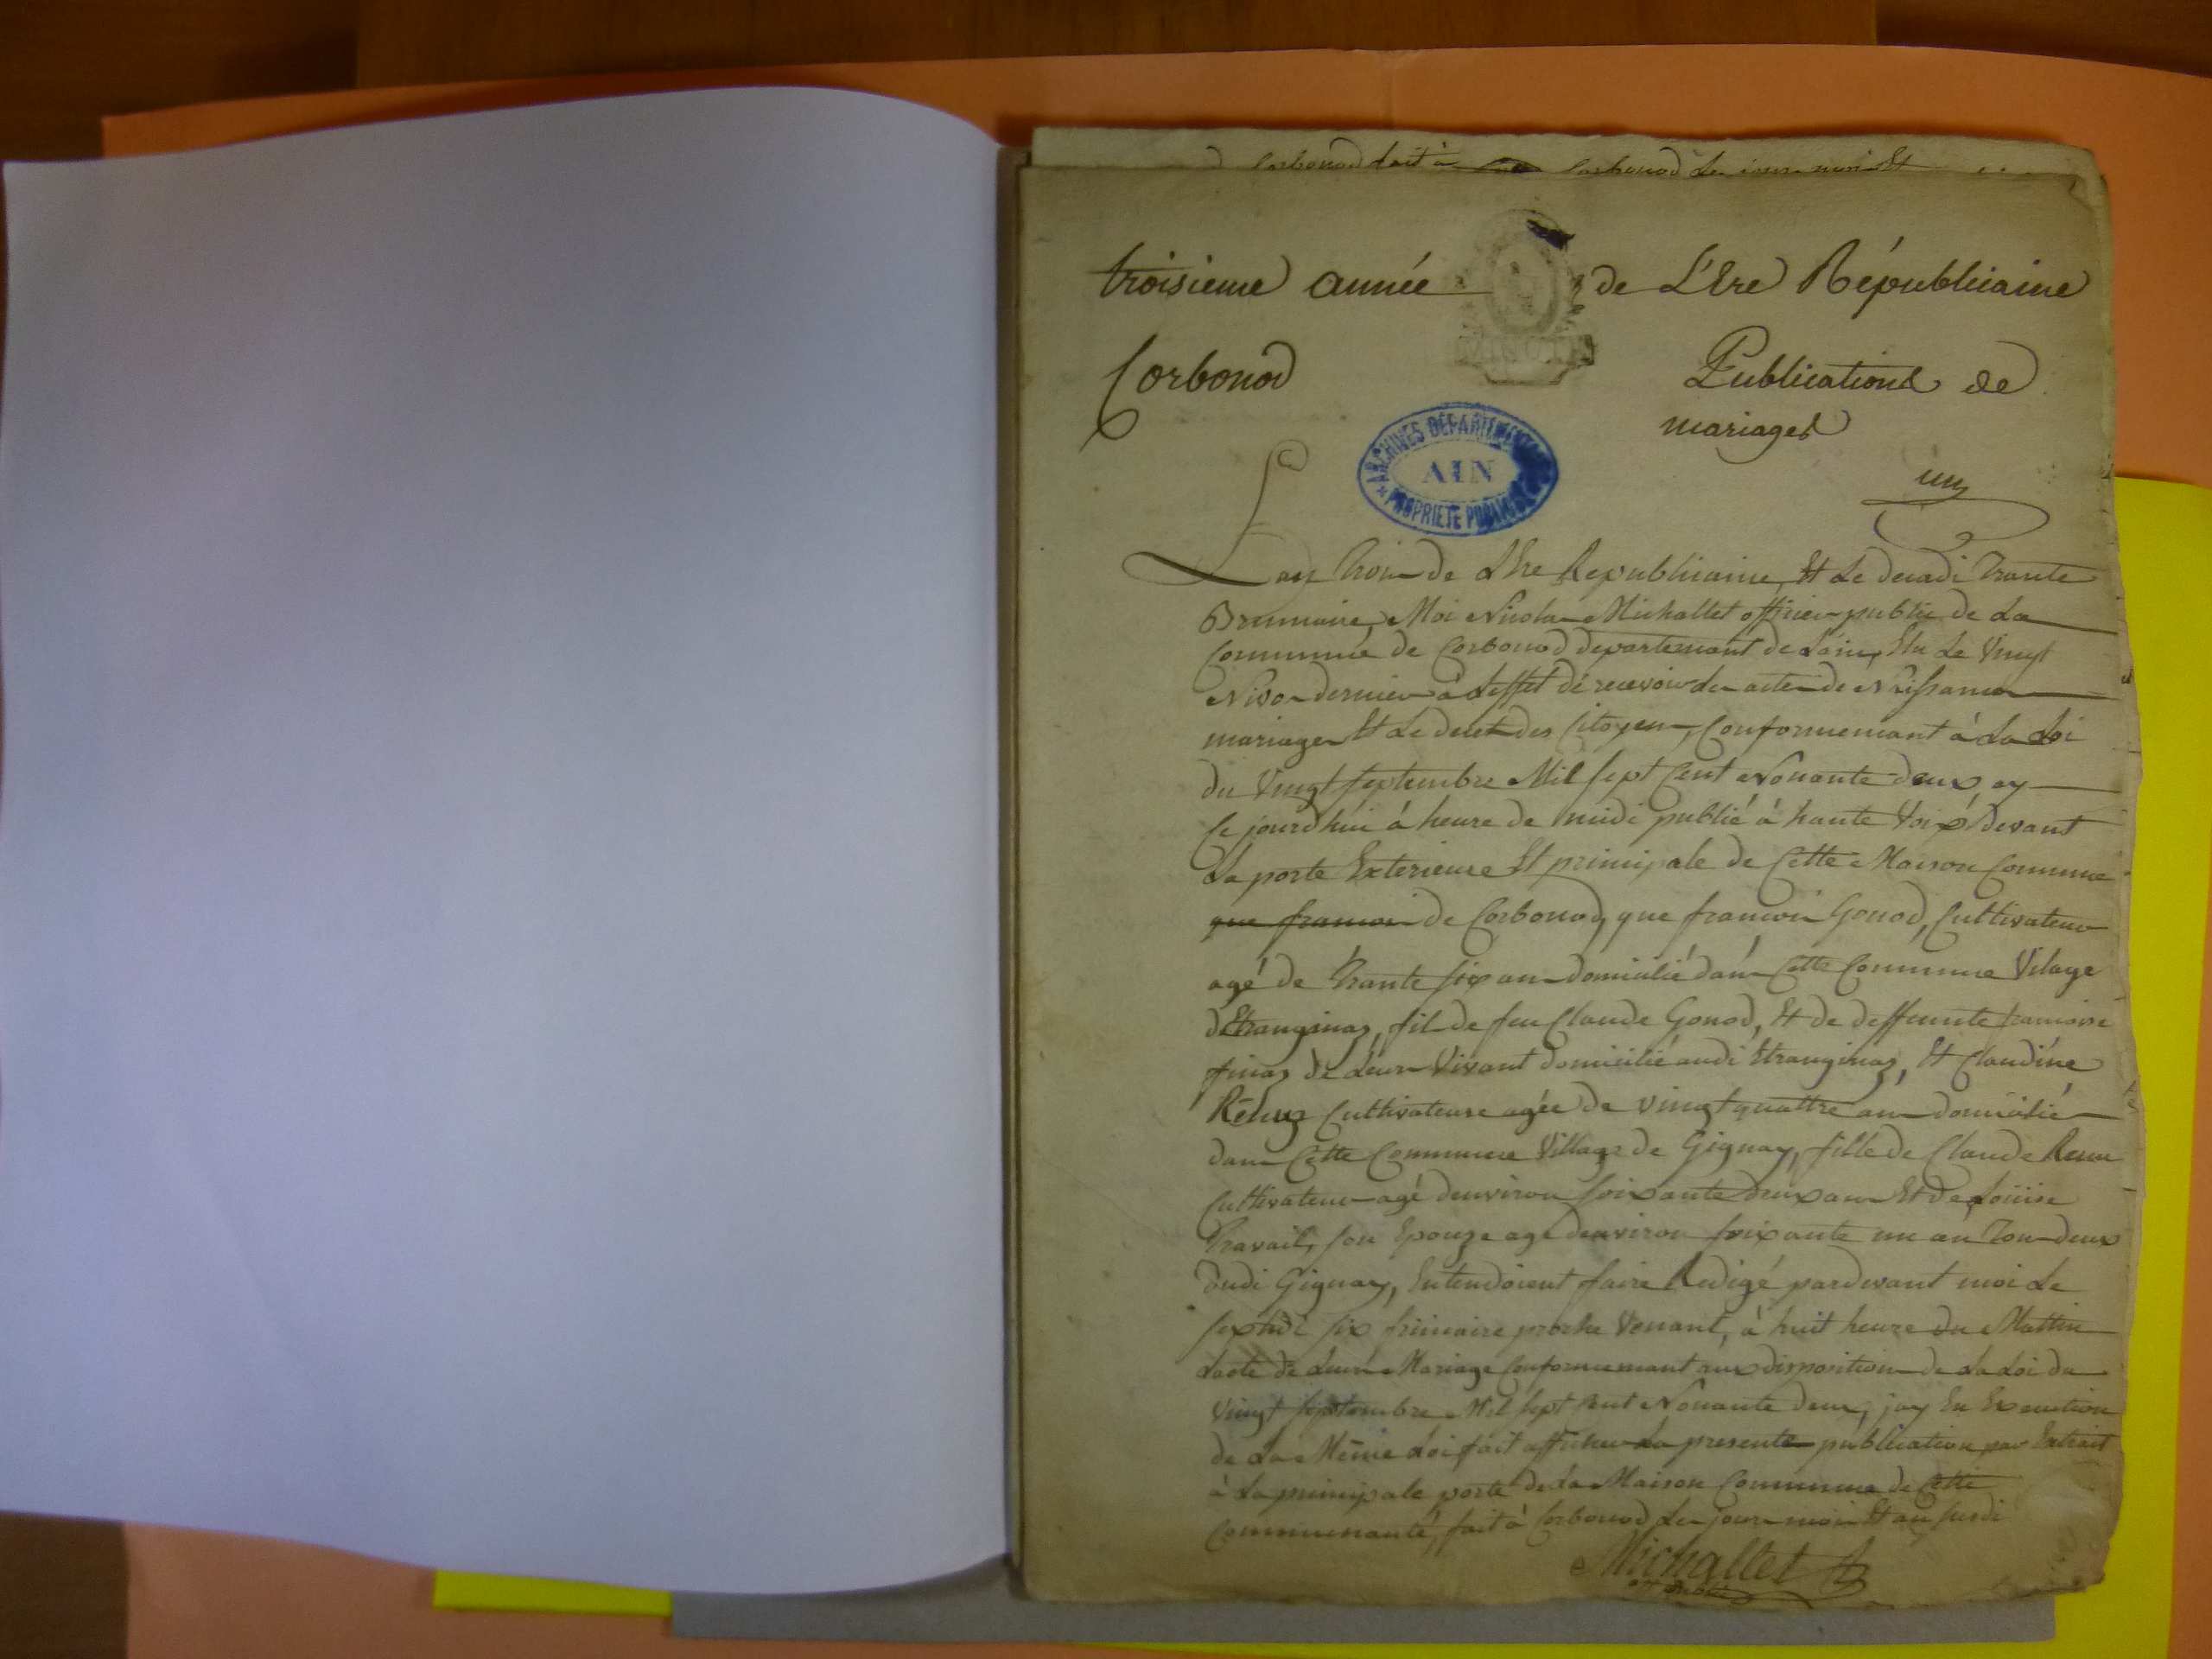 Corbonod fait à Corbonod les jour mois Et
troisieme année de L'Ere Républicaine
MINUTE
Corbonod
Publications de
mariages
ARCHIVES DEPARTEMENTALES
AIN
PROPRIETE PUBLIQUE
un
Lan trois de L'Ere Republicaine, Et Le decadi trante
Brumaire, Moi Nicolas Michallet officier public de La
Commune de Corbonod departement de Lain, Elu Le Vingt
Nivos dernier à Leffet de recevoir les actes de Naissances
mariages Et Le decet des Citoyens, Conformement à La Loi
du Vingt Septembre Mil Sept Cent Nonante deux, ay
Ce jourdhui à heure de midi publié à haute Voix devant
La porte Exterieure Et principale de Cette Maison Commune
que francois de Corbonod, que francois Gonod, Cultivateur
agé de trante six ans domicilié dans Cette Commune Vilage
d'Etranginaz, fils de feu Claude Gonod, Et de deffeunte francoise
finaz de Leurs Vivant domicilié audi Etranginaz, Et Claudine
Reluz Cultivateuse agée de vingt quattre ans domicilié
dans Cette Commune Village de Gignay, fille de Claude
Cultivateur agé denviron soixante deux ans Et de Loüise
Travail, son Epouze agé denviron soixante un an tous deux
dudi Gignay, Entendoient faire Redigé pardevant moi Le
Sextidi six frimaire proche Venant, à huit heure du Mattin
Lacte de Leurs Mariage Conformemant aux disposition de La Loi du
Vingt Septembre Mil Sept Cent Nonante Deux, jay En Execution
de La Même Loi fait afficher La presente publication par Extrait
à La principale porte de La Maison Commune de Cette
Communauté, fait à Corbonod les jours mois Et an susdi
Michallet